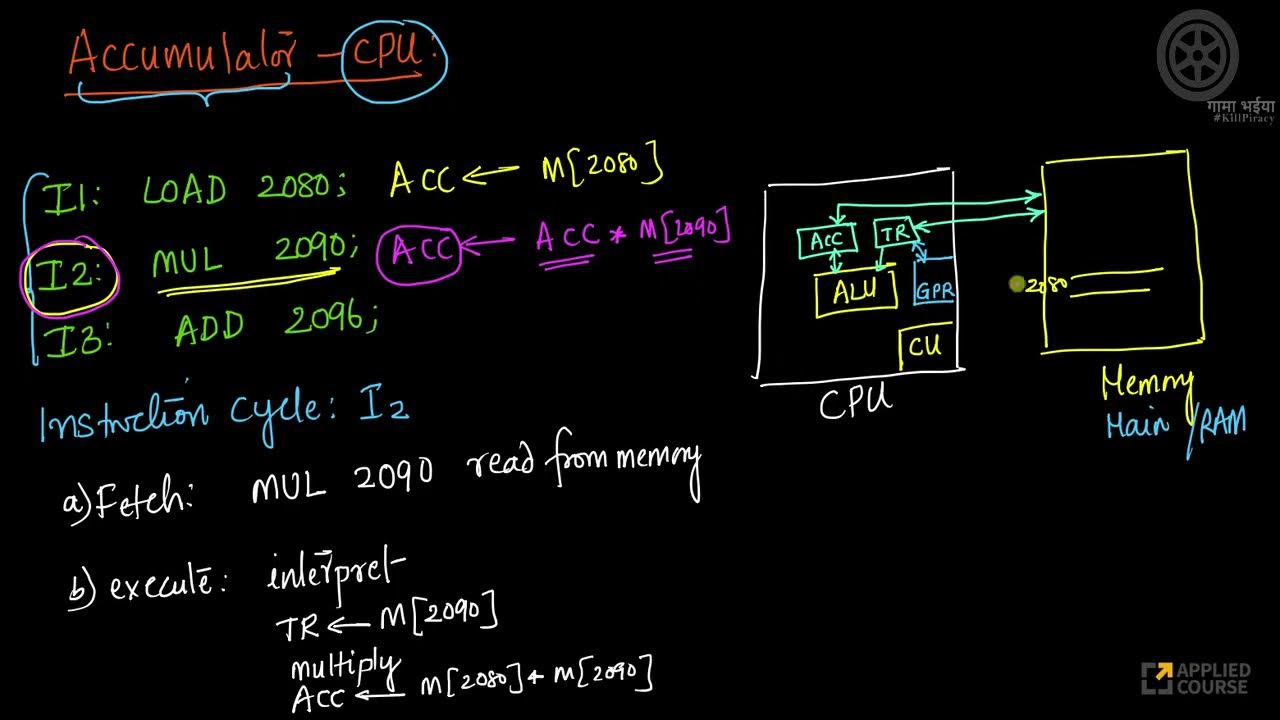 Accumulator - CPU:
गामा भईया
#KillPiracy
I1: LOAD 2080; ACC ← M[2080]
I2: MUL 2090; ACC ← ACC * M[2090]
I3: ADD 2096;
ACC TR
ALU GPR
CU
CPU
2080
Memory
Main /RAM
Instruction Cycle: I2
a) Fetch: MUL 2090 read from memory
b) execute: interpret
TR ← M[2090]
multiply
ACC ← M[2080] * M[2090]
APPLIED
COURSE